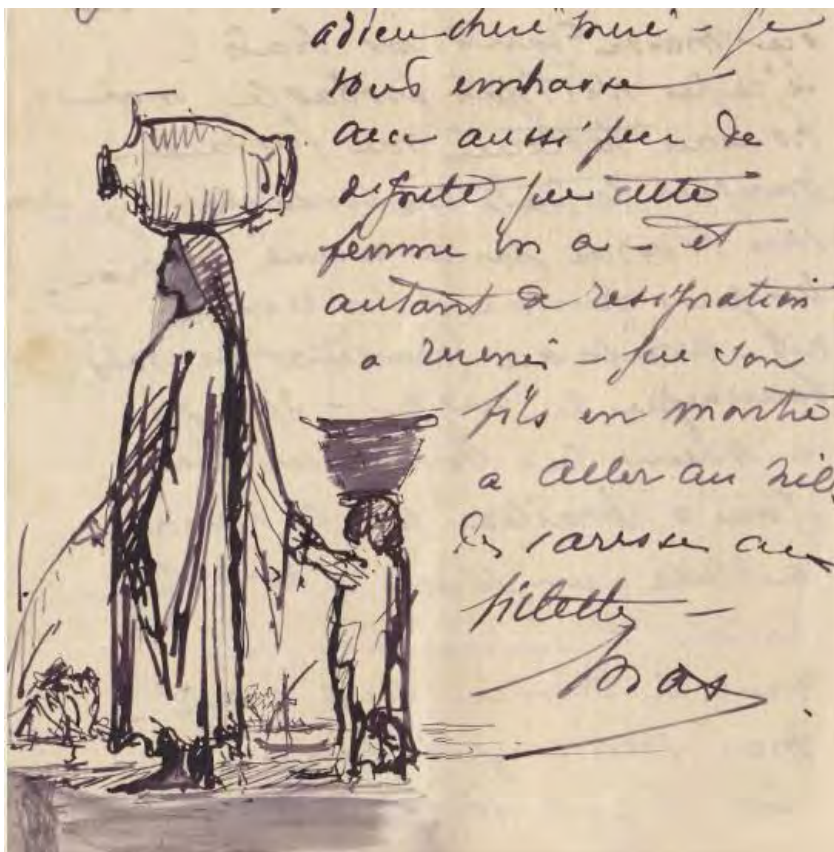 adieu chere "mere" - je
vous embrasse
avec aussi peu de
dignité que cette
femme en a - et
autant de resignation
a revenir - que son
fils en montre
a aller au nil.
les caresses aux
fillettes -